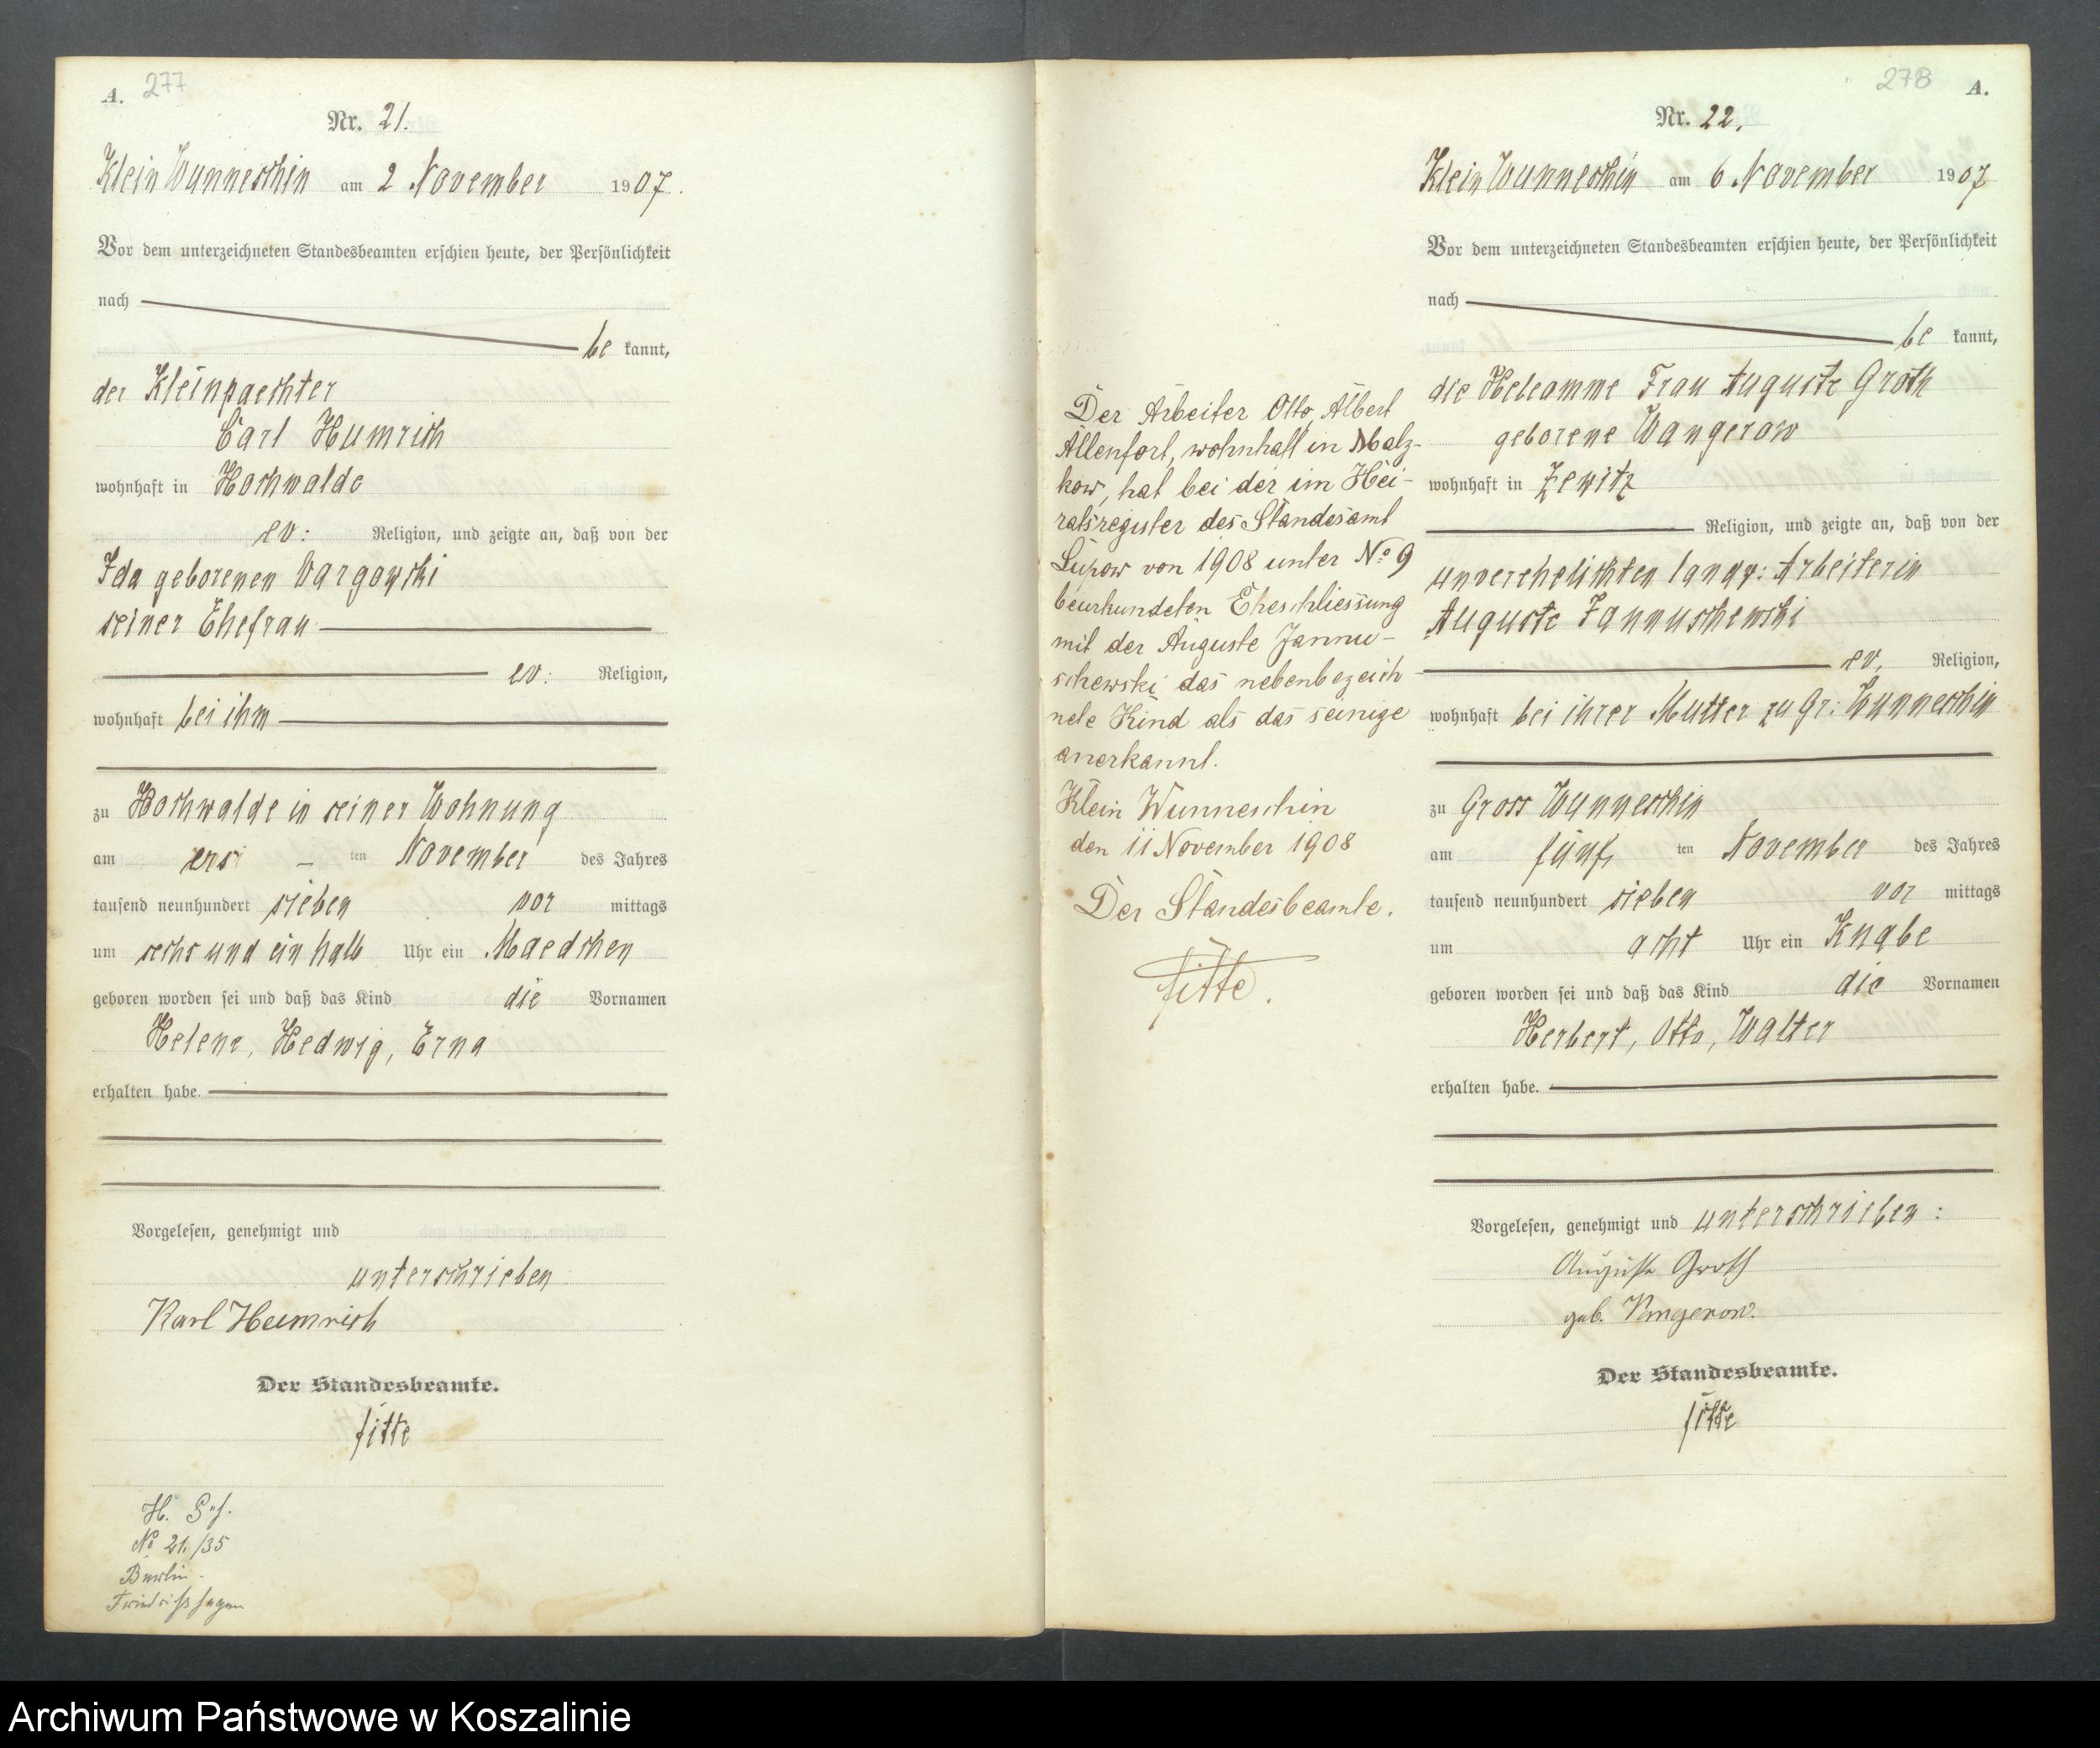 A. 277
Nr. 21.
Klein Wunneschin am 2 November 1907.
Vor dem unterzeichneten Standesbeamten erschien heute, der Persönlichkeit
nach
be kannt,
der Kleinpaechter
Carl Humrich
wohnhaft in Hochwalde
ev: Religion, und zeigte an, daß von der
Ida geborenen Dargowski
seiner Ehefrau
ev: Religion,
wohnhaft bei ihm
zu Hochwalde in seiner Wohnung
am ers ten November des Jahres
tausend neunhundert sieben vor mittags
um sechs und ein halb Uhr ein Maedchen
geboren worden sei und daß das Kind die Vornamen
Helene, Hedwig, Erna
erhalten habe.
Vorgelesen, genehmigt und
unterschrieben
Karl Humrich
Der Standesbeamte.
Fitte
H.
No 21./35
Berlin-
Friedrichshagen
278 A.
Nr. 22.
Klein Wunneschin am 6 November 1907
Vor dem unterzeichneten Standesbeamten erschien heute, der Persönlichkeit
nach
be kannt,
die Hebeamme Frau Auguste Groth
geborene Wangerow
wohnhaft in Zewitz
Religion, und zeigte an, daß von der
unverehelichten landw: Arbeiterin
Auguste Jannuschewski
ev, Religion,
wohnhaft bei ihrer Mutter zu Gr: Wunneschin
zu Gross Wunneschin
am fünf ten November des Jahres
tausend neunhundert sieben vor mittags
um acht Uhr ein Knabe
geboren worden sei und daß das Kind die Vornamen
Herbert, Otto, Walter
erhalten habe.
Vorgelesen, genehmigt und unterschrieben:
Auguste Groth
geb. Wangerow.
Der Standesbeamte.
Fitte
Der Arbeiter Otto Albert
Allenfort, wohnhaft in Malz-
kow, hat bei der im Hei-
ratsregister des Standesamt
Lupow von 1908 unter No 9
beurkundeten Eheschliessung
mit der Auguste Jannu-
schewski das nebenbezeich-
nete Kind als das seinige
anerkannt.
Klein Wunneschin
den 11 November 1908
Der Standesbeamte.
Fitte.
Archiwum Państwowe w Koszalinie